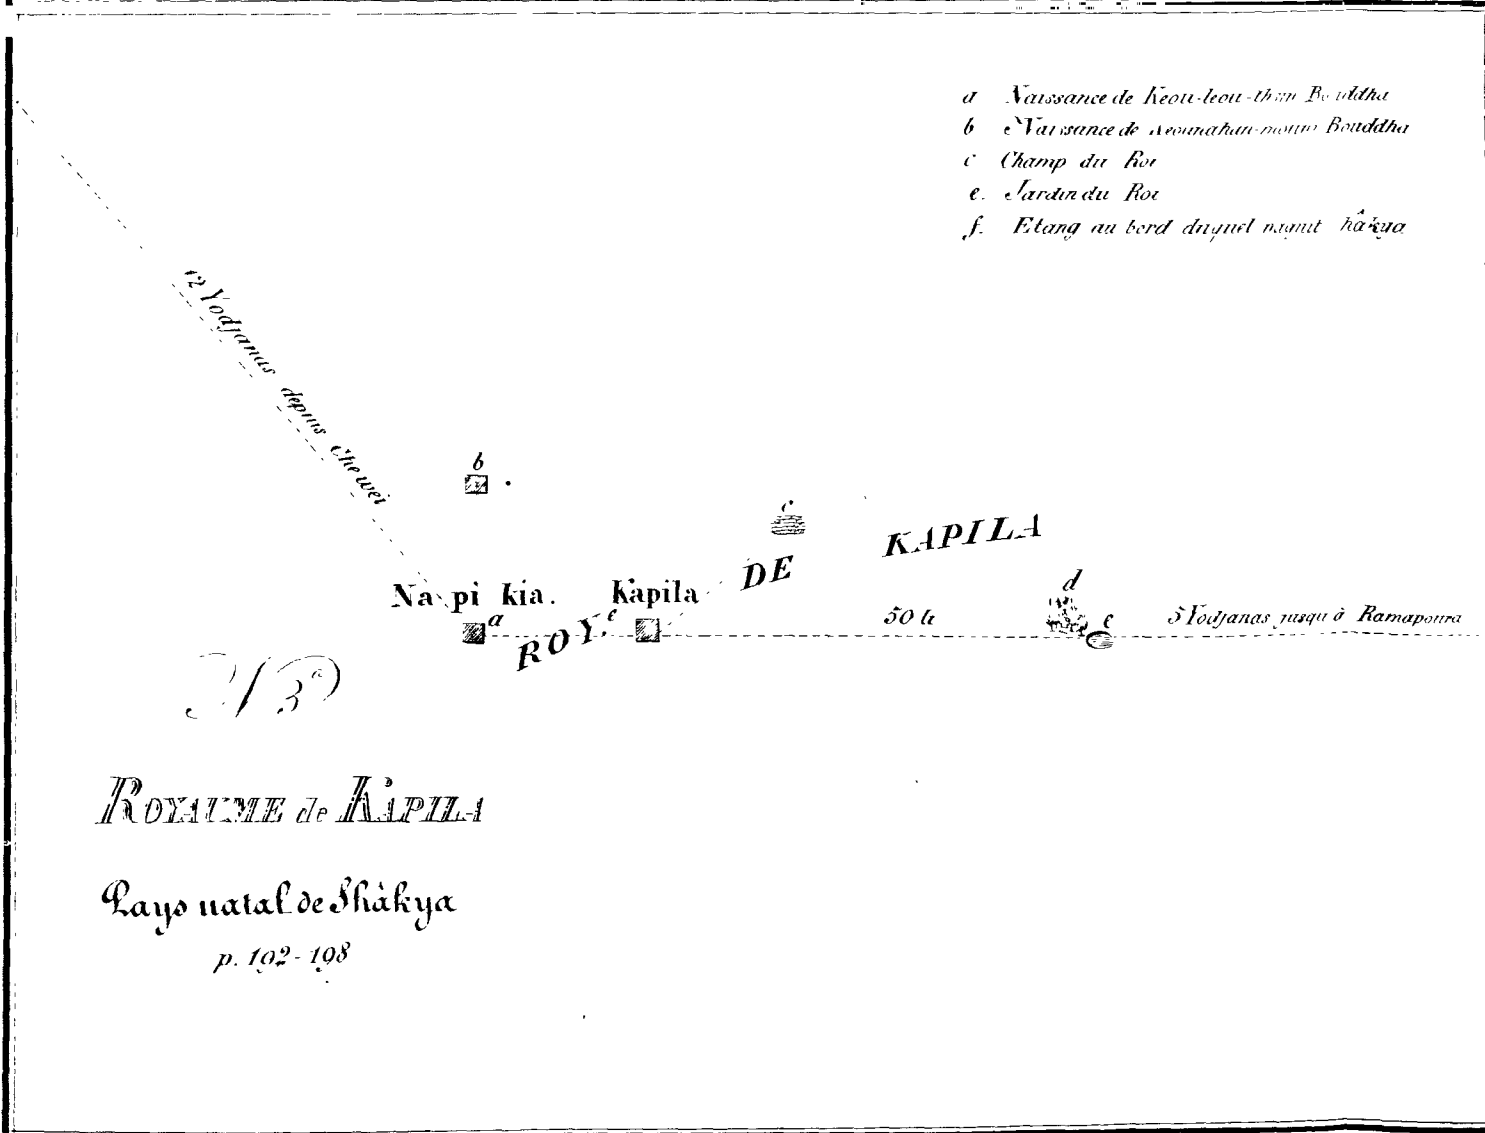 a Naissance de Keou-leou-than Bouddha
b Naissance de Bouddha
c Champ du Roi
e. Jardin du Roi
f. Etang au bord duquel naquit hâkya
12 Yodjanas depuis Che wei
b
c
ROY. DE KAPILA
Na pi kia.
Kapila
a
e
50 li
d
e
5 Yodjanas jusqu'à Ramapoura
N 3
ROYAUME de KAPILA
Pays natal de Shâkya
p. 192-198